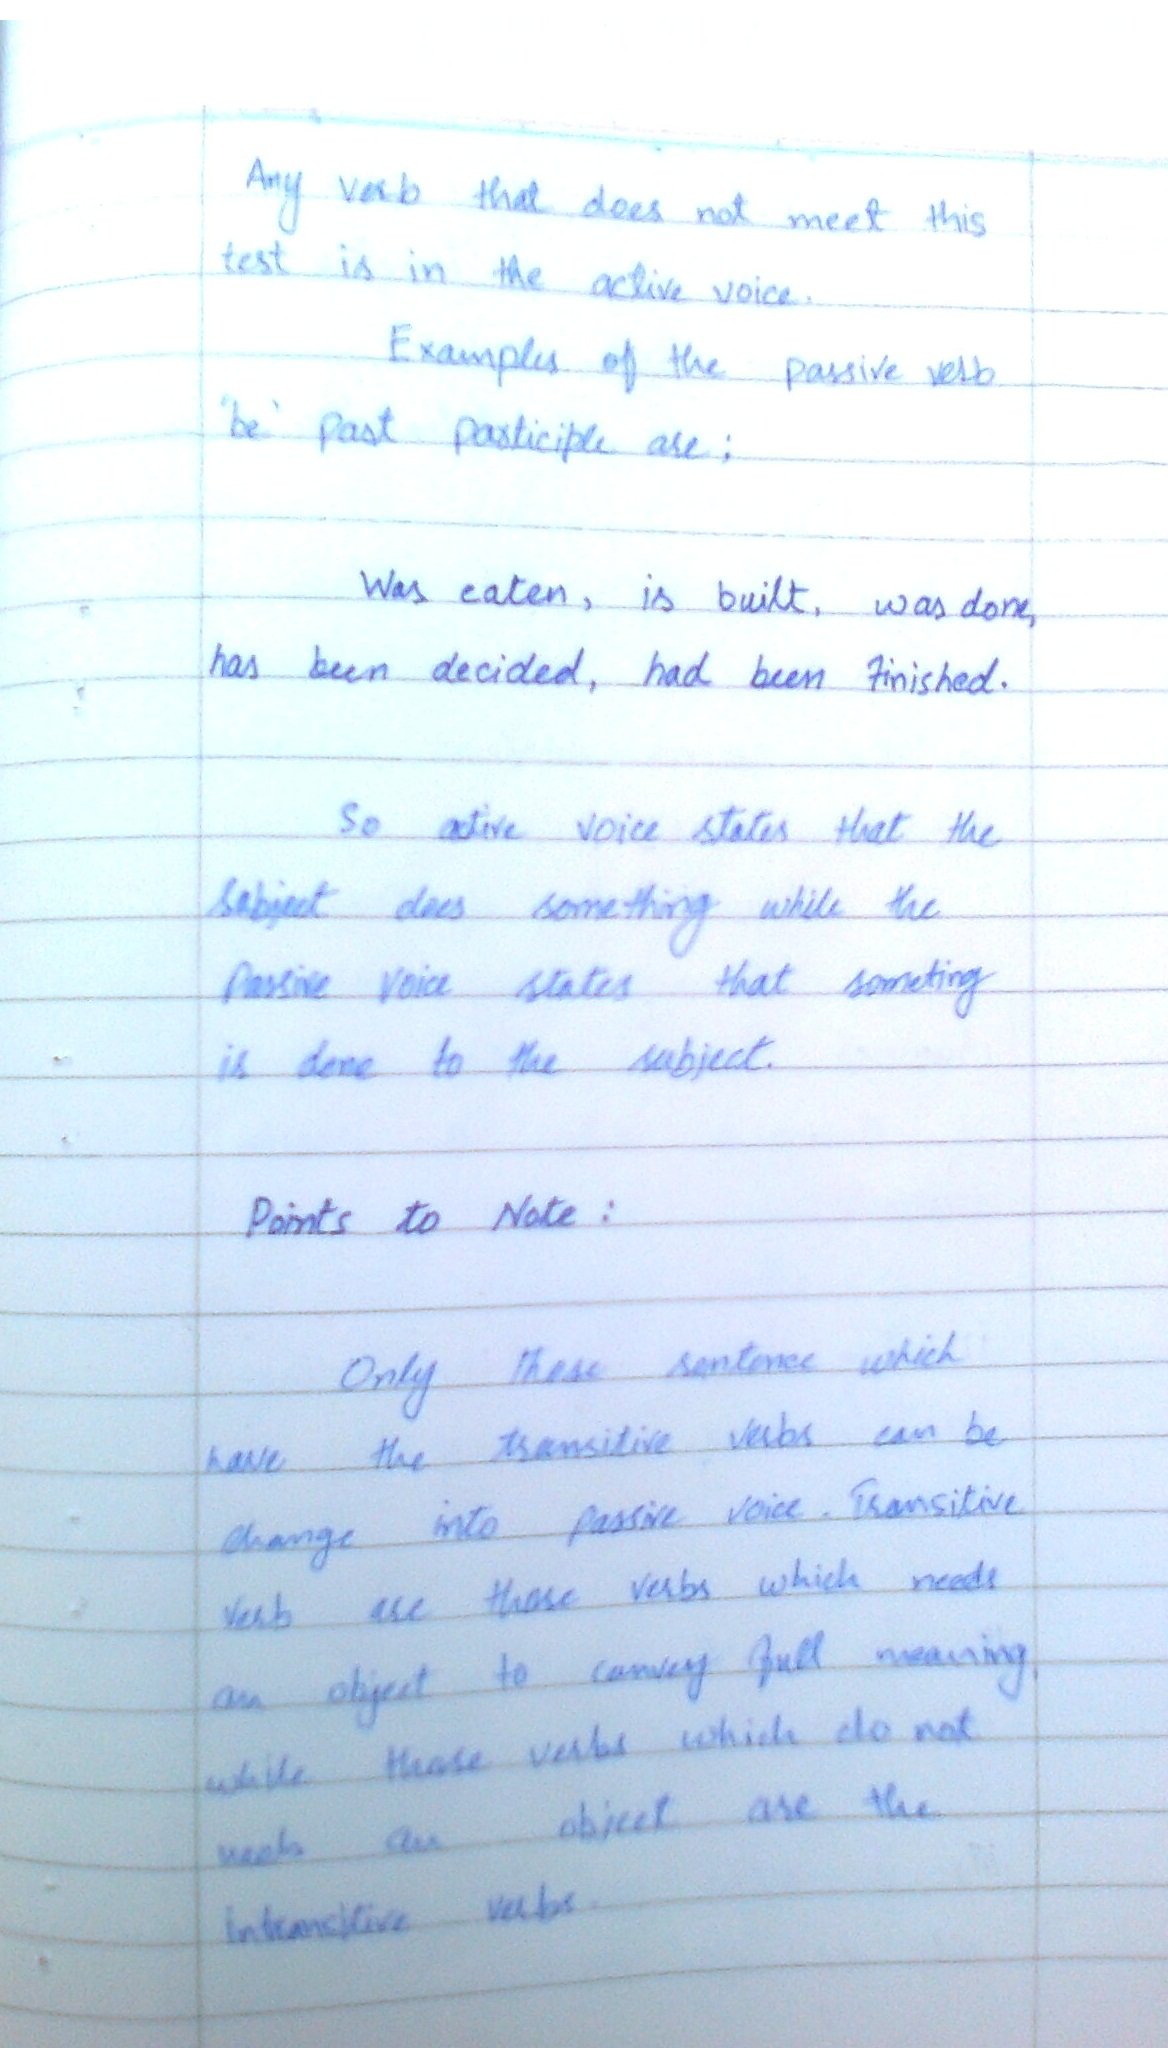 Any verb that does not meet this
test is in the active voice.
Examples of the passive verb
'be' past participle are;
Was eaten, is built, was done,
has been decided, had been Finished.
So active voice states that the
Subject does something while the
Passive Voice states that someting
is done to the subject.
Points to Note :
Only those sentence which
have the transitive verbs can be
change into passive voice. Transitive
verb are those verbs which needs
an object to convey full meaning
while those verbs which do not
needs an object are the
intransitive verbs.